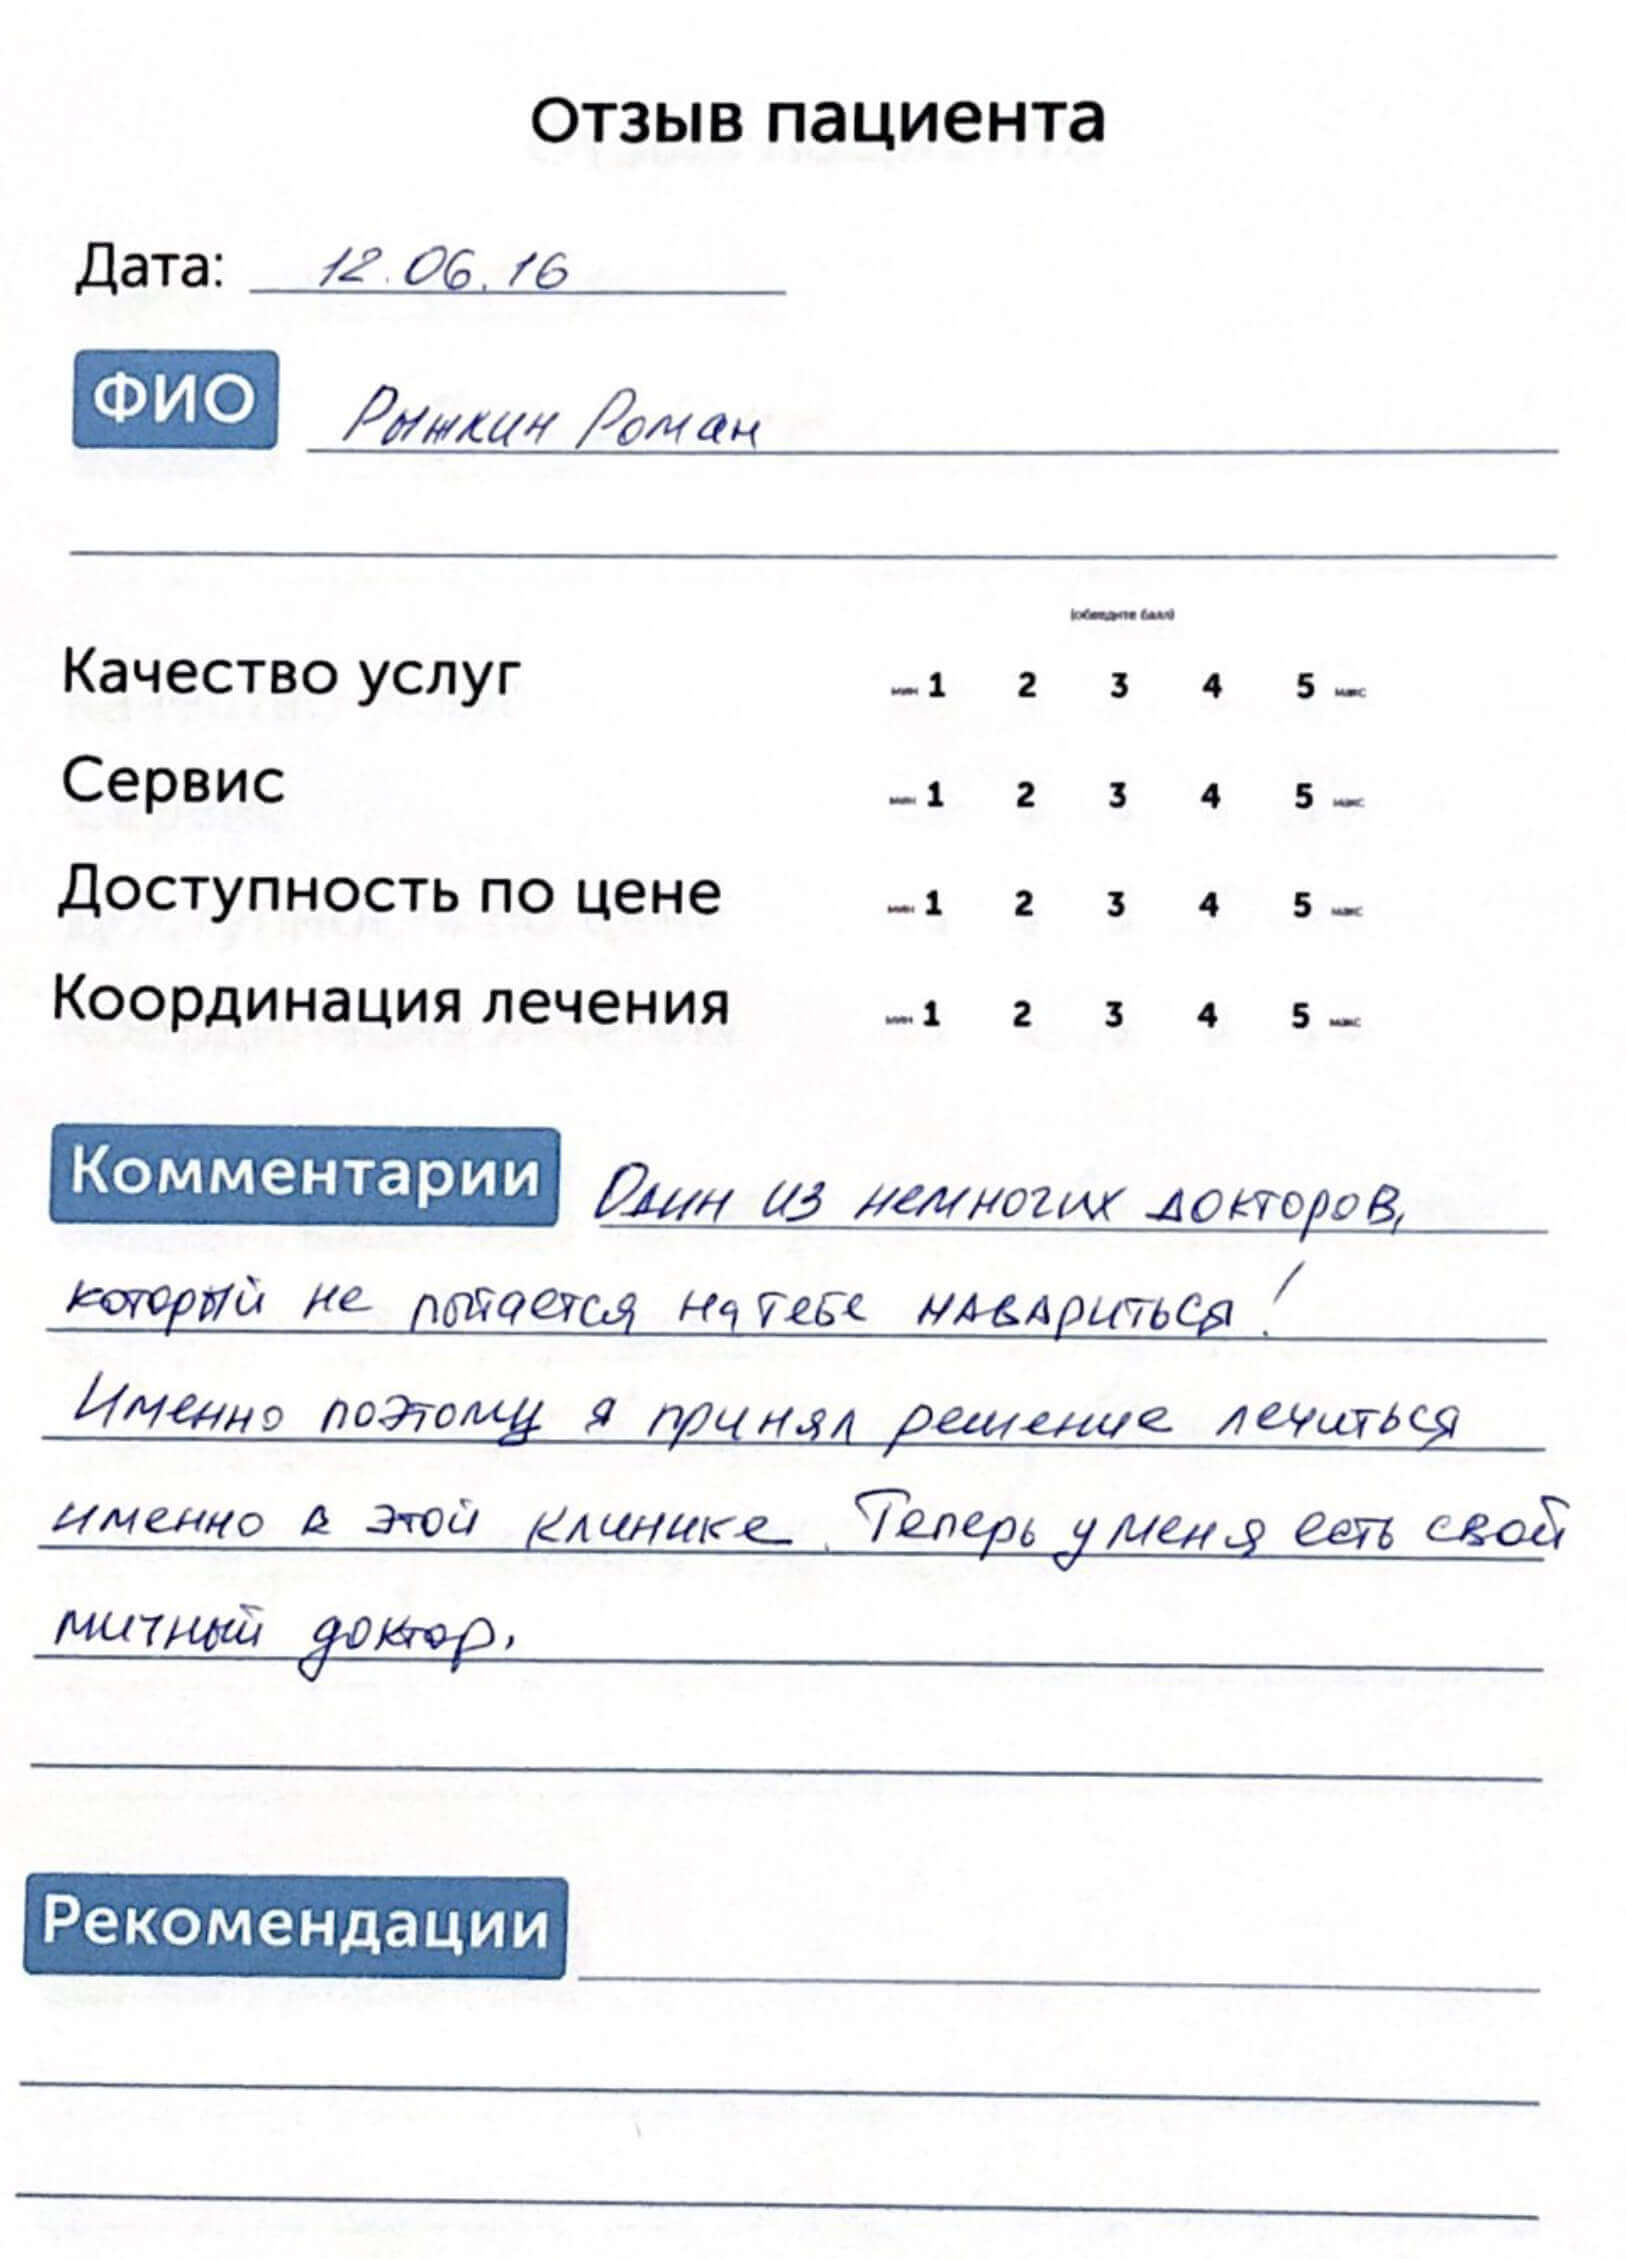 Отзыв пациента
Дата: 12.06.16
ФИО Рыжкин Роман
(обведите балл)
Качество услуг мин 1 2 3 4 5 макс
Сервис мин 1 2 3 4 5 макс
Доступность по цене мин 1 2 3 4 5 макс
Координация лечения мин 1 2 3 4 5 макс
Комментарии Один из немногих докторов,
который не пытается на тебе навариться!
Именно поэтому я принял решение лечиться
именно в этой клинике. Теперь у меня есть свой
личный доктор.
Рекомендации